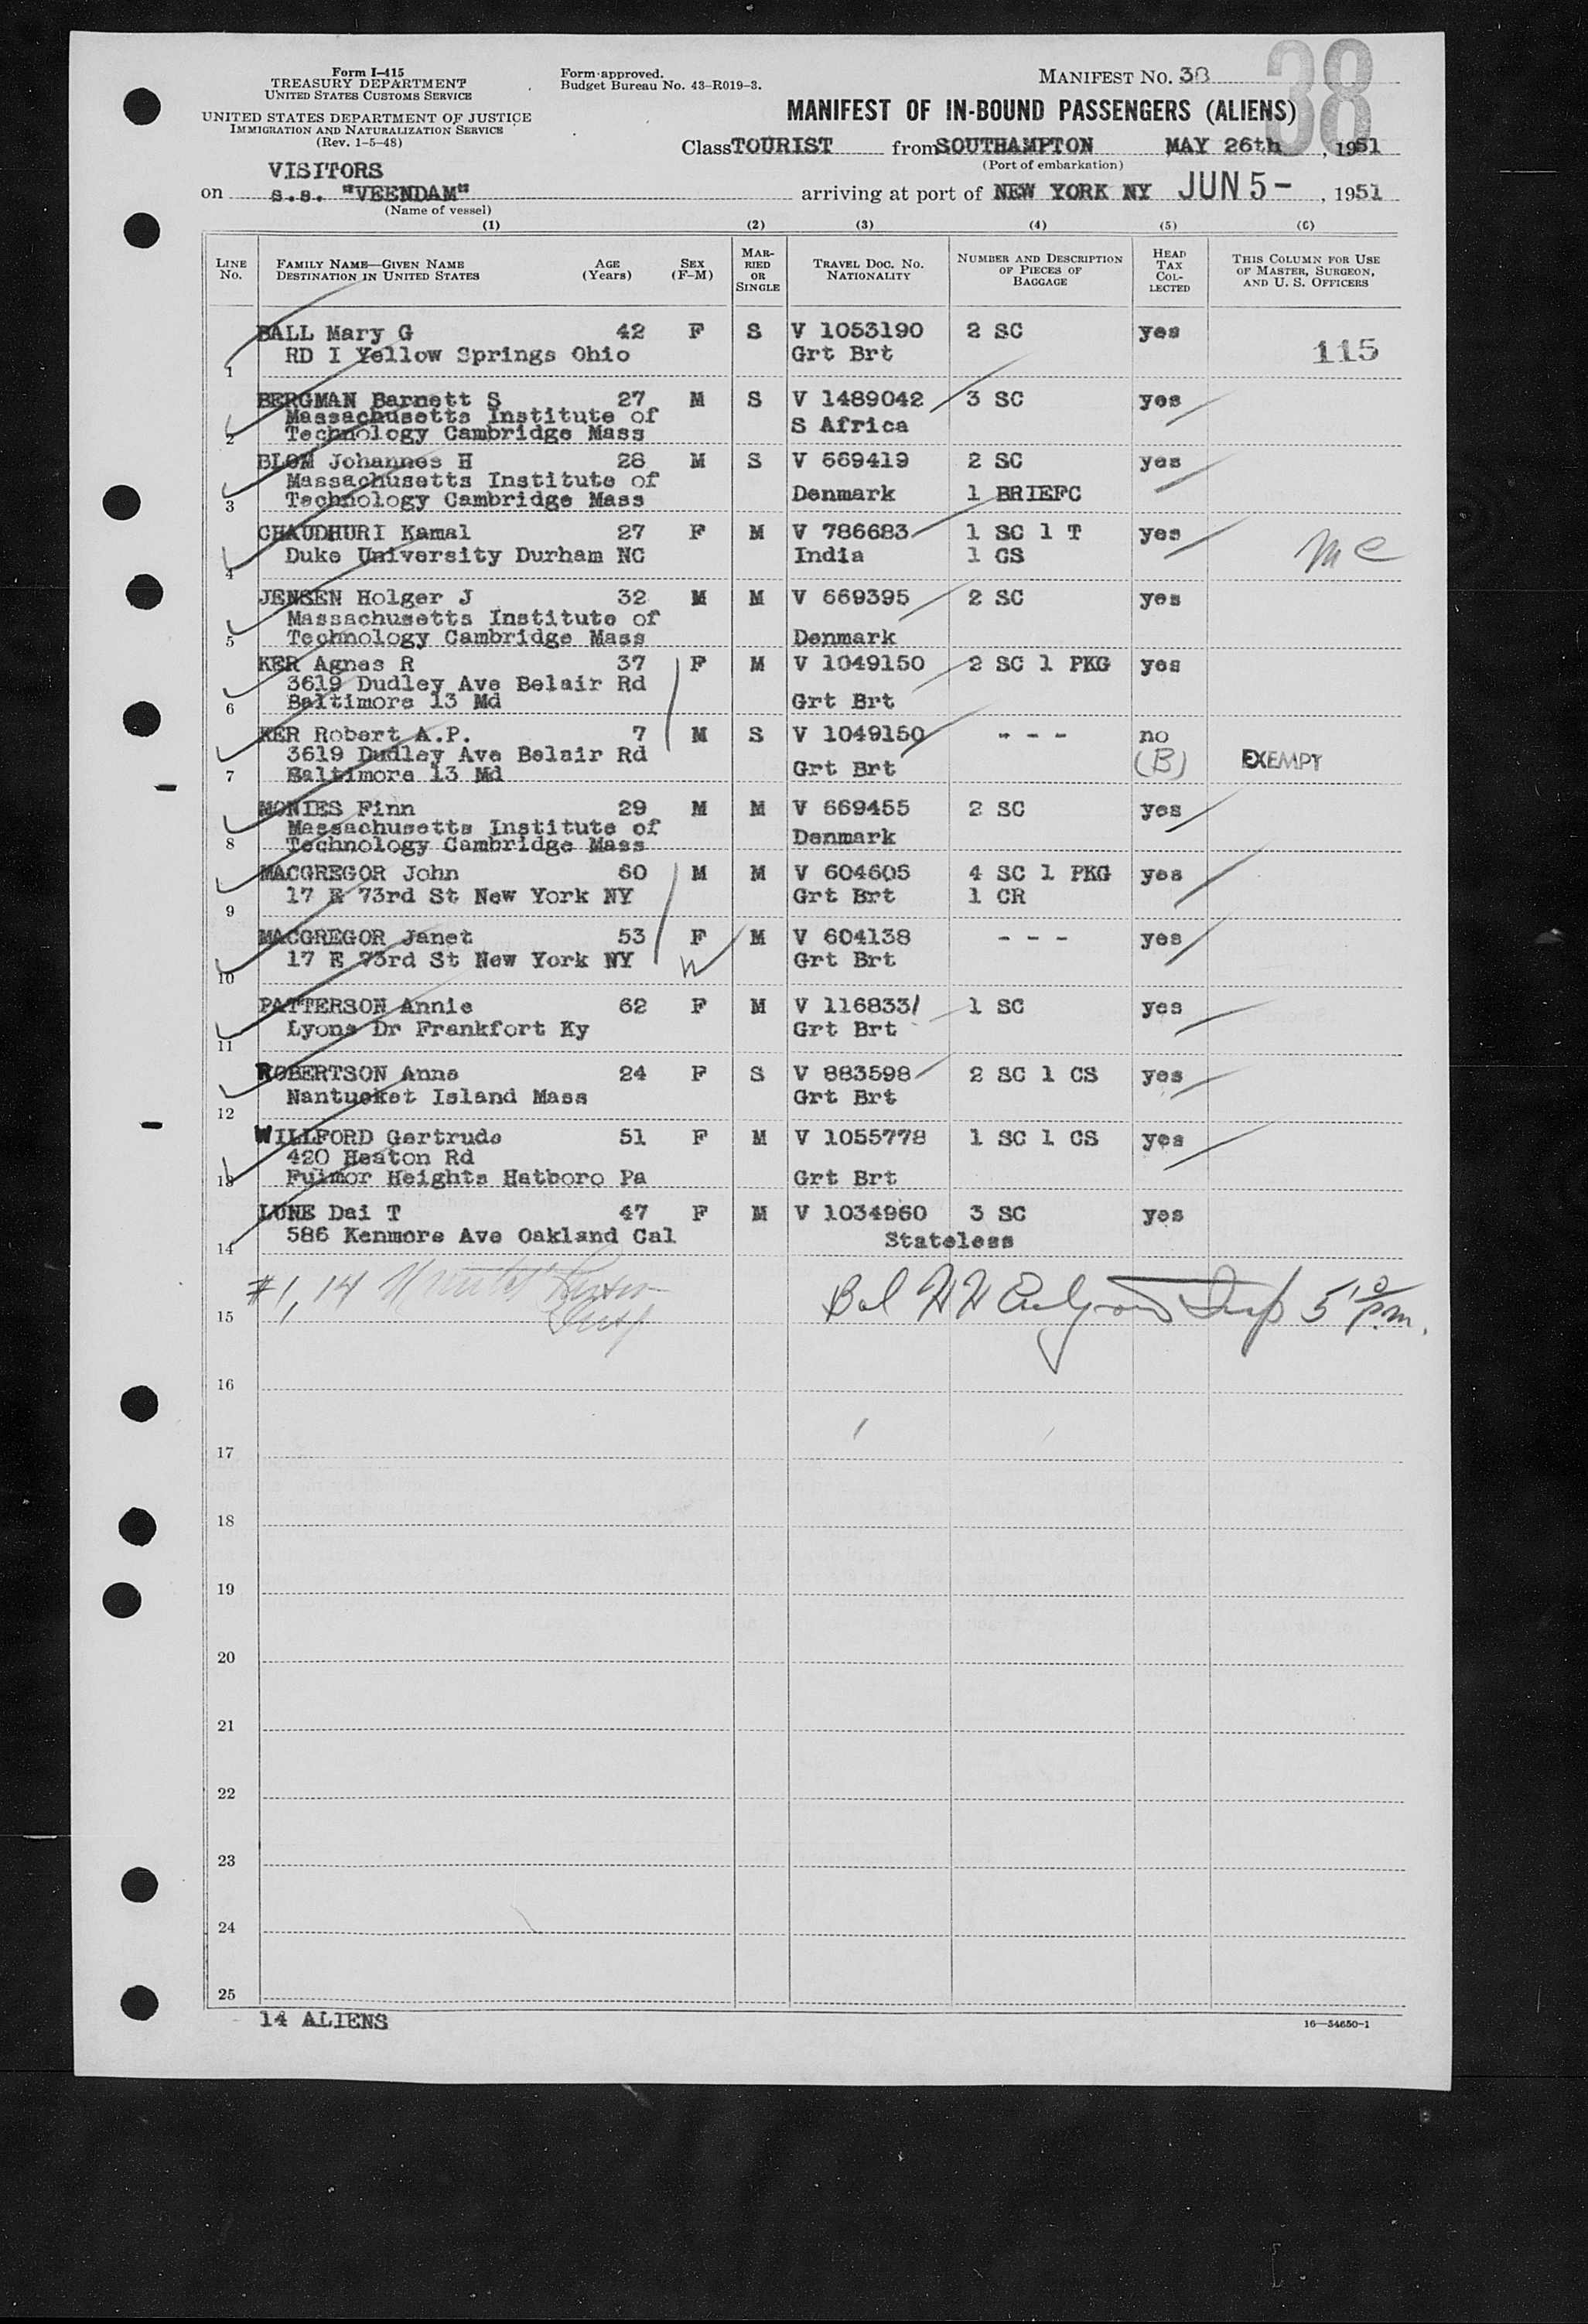 Form I-415
TREASURY DEPARTMENT
UNITED STATES CUSTOMS SERVICE
UNITED STATES DEPARTMENT OF JUSTICE
IMMIGRATION AND NATURALIZATION SERVICE
(Rev. 1-5-48)
Form approved.
Budget Bureau No. 43-R019-3.
MANIFEST NO. 38
38
MANIFEST OF IN-BOUND PASSENGERS (ALIENS)
Class TOURIST from SOUTHAMPTON MAY 26th, 1951
(Port of embarkation)
VISITORS
on s.s. "VEENDAM" arriving at port of NEW YORK NY JUN 5-, 1951
(Name of vessel)
(1) (2) (3) (4) (5) (6)
LINE No. FAMILY NAME—GIVEN NAME DESTINATION IN UNITED STATES AGE (Years) SEX (F-M) MARRIED OR SINGLE TRAVEL DOC. NO. NATIONALITY NUMBER AND DESCRIPTION OF PIECES OF BAGGAGE HEAD TAX COLLECTED THIS COLUMN FOR USE OF MASTER, SURGEON, AND U. S. OFFICERS
BALL Mary G 42 F S V 1053190 2 SC yes
1 RD I Yellow Springs Ohio Grt Brt 115
BERGMAN Barnett S 27 M S V 1489042 3 SC yes
Massachusetts Institute of S Africa
2 Technology Cambridge Mass
BLOM Johannes H 28 M S V 669419 2 SC yes
Massachusetts Institute of
3 Technology Cambridge Mass Denmark 1 BRIEFC
CHAUDHURI Kamal 27 F M V 786683 1 SC 1 T yes
4 Duke University Durham NC India 1 CS
JENSEN Holger J 32 M M V 669395 2 SC yes
Massachusetts Institute of
5 Technology Cambridge Mass Denmark
KER Agnes R 37 F M V 1049150 2 SC 1 PKG yes
3619 Dudley Ave Belair Rd
6 Baltimore 13 Md Grt Brt
KER Robert A.P. 7 M S V 1049150 - - - no
3619 Dudley Ave Belair Rd (B) EXEMPT
7 Baltimore 13 Md Grt Brt
MONIES Finn 29 M M V 669455 2 SC yes
Massachusetts Institute of Denmark
8 Technology Cambridge Mass
MACGREGOR John 60 M M V 604605 4 SC 1 PKG yes
9 17 E 73rd St New York NY Grt Brt 1 CR
MACGREGOR Janet 53 F M V 604138 - - - yes
10 17 E 73rd St New York NY Grt Brt
PATTERSON Annie 62 F M V 116833/ 1 SC yes
11 Lyons Dr Frankfort Ky Grt Brt
ROBERTSON Anne 24 F S V 883598 2 SC 1 CS yes
12 Nantucket Island Mass Grt Brt
WILLFORD Gertrude 51 F M V 1055778 1 SC 1 CS yes
420 Heaton Rd
13 Fulmor Heights Hatboro Pa Grt Brt
LUNE Dai T 47 F M V 1034960 3 SC yes
14 586 Kenmore Ave Oakland Cal Stateless
#1, 14
15
16
17
18
19
20
21
22
23
24
25
14 ALIENS
16—54650-1